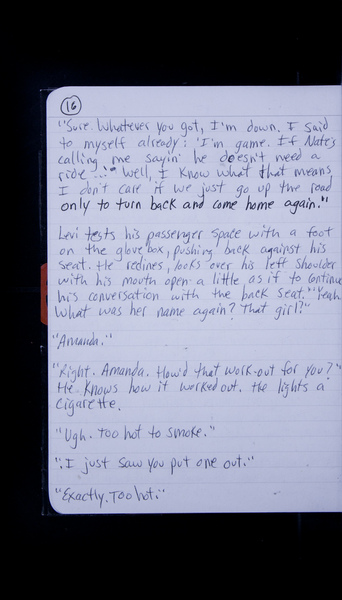 16
"Sure. Whatever you got, I'm down. I said
to myself already: 'I'm game. If Nate's
calling me sayin' he doesn't need a
ride ...'" Well, I know what that means
I don't care if we just go up the road
only to turn back and come home again."
Levi tests his passenger space with a foot
on the glovebox, pushing back against his
seat. He reclines, looks over his left shoulder
with his mouth open a little as if to continue
his conversation with the back seat. "Yeah.
What was her name again? That girl?"
"Amanda."
"Right. Amanda. How'd that work-out for you?"
He knows how it worked out. He lights a
cigarette.
"Ugh. Too hot to smoke."
"I just saw you put one out."
"Exactly. Too hot."